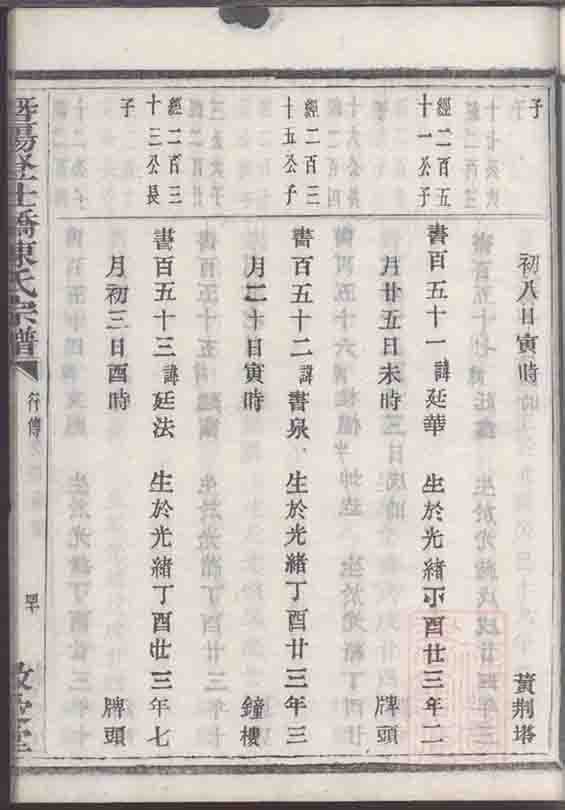 子
初八日寅時
黃荆塔
經二百五
十一公子
書百五十一諱廷華 生於光緒丁酉廿三年二
月廿五日未時
牌頭
經二百三
十五公子
書百五十二諱書泉 生於光緒丁酉廿三年三
月二十日寅時
鐘樓
經二百三
十三公長
子
書百五十三諱廷法 生於光緒丁酉廿三年七
月初三日酉時
牌頭
暨陽登仕橋陳氏宗譜
行傳